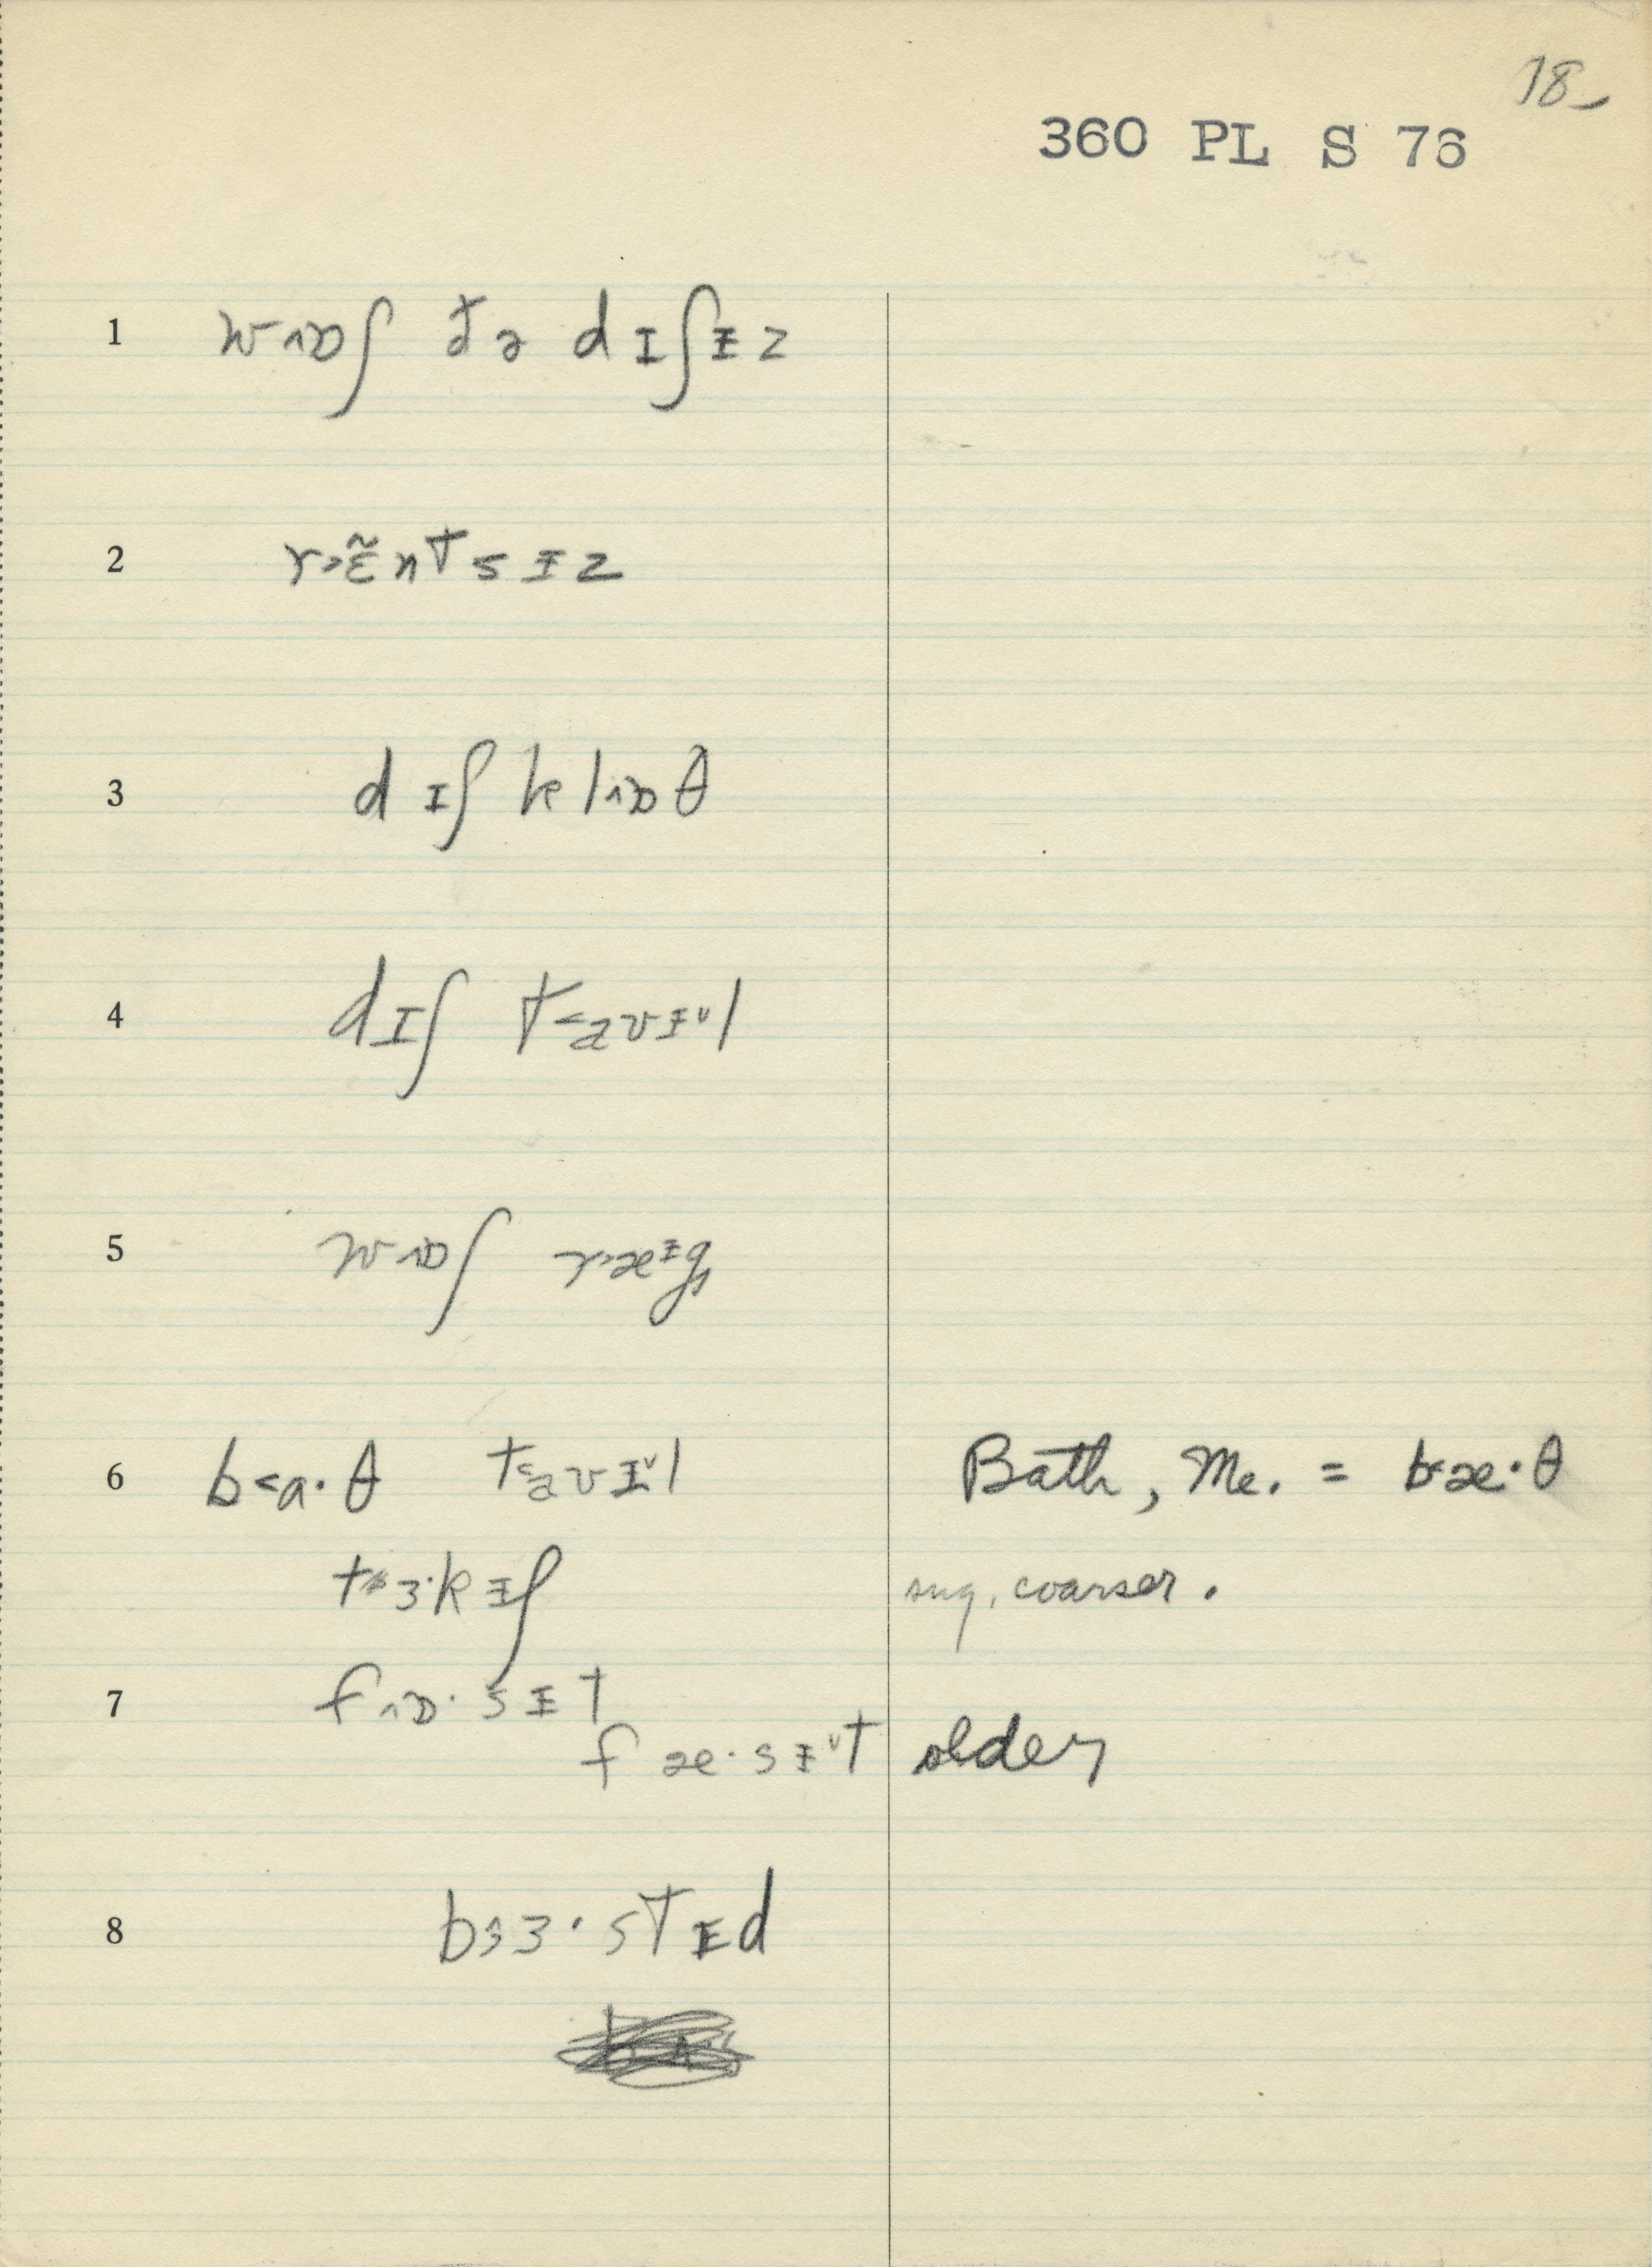 18
360 PL S 76
1 w˄ɒʃ t̬ə dɪʃɪ̵z
2 r˃ɛ̃ntsɪ̵z
3 dɪʃkl˄ɒθ
4 dɪʃ t˂aʊɪ̵ᵛl
5 w˄ɒʃ r˃æᶤg
6 b˂a·θ t˂aʊɪ̵ᵛl Bath, Me. = b˂æ·θ
t˃ɜ·kɪ̵ʃ sug. coarser.
7 f˄ɒ·sɪ̵t
fæ·sɪ̵ᵛt older
8 bɜ·stɪ̵d